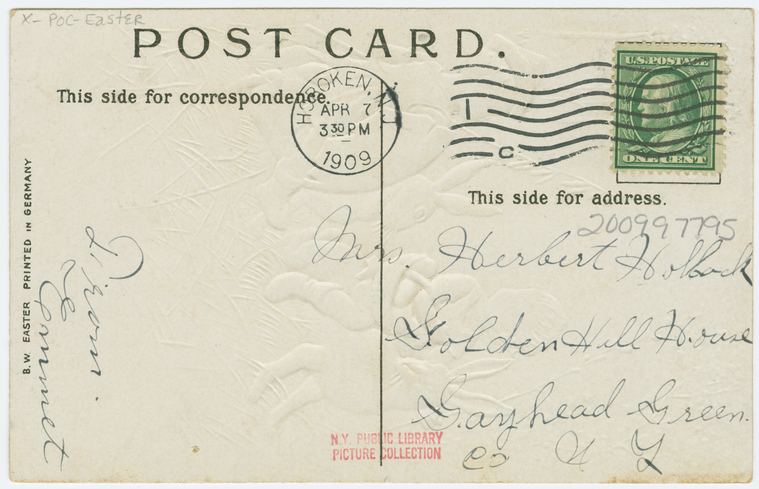 X-POC-EASTER
POST CARD.
This side for correspondence.
HOBOKEN, N.J.
APR 7
3 30 PM
1909
1
C
U.S. POSTAGE
ONE CENT
This side for address.
200997795
Mrs. Herbert Holbock
Golden Hill House
Gayhead Green.
Co N Y
From
Emmet
B.W EASTER PRINTED IN GERMANY
N.Y. PUBLIC LIBRARY
PICTURE COLLECTION